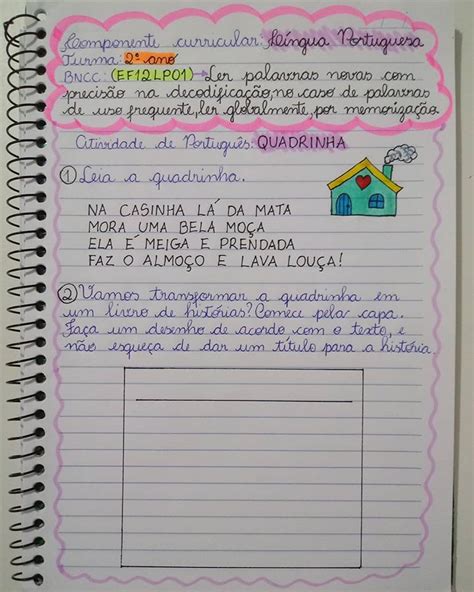 Componente curricular: Língua Portuguesa
Turma: 2º ano
BNCC: (EF12LP01) → Ler palavras novas com
precisão na decodificação, no caso de palavras
de uso frequente, ler globalmente, por memorização.
Atividade de Português: QUADRINHA
1 Leia a quadrinha.
NA CASINHA LÁ DA MATA
MORA UMA BELA MOÇA
ELA É MEIGA E PRENDADA
FAZ O ALMOÇO E LAVA LOUÇA!
2 Vamos transformar a quadrinha em
um livro de histórias? Comece pela capa.
Faça um desenho de acordo com o texto, e
não esqueça de dar um título para a história.